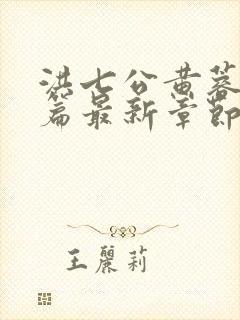 洪七公黄蓉
篇最新章节
王麗莉